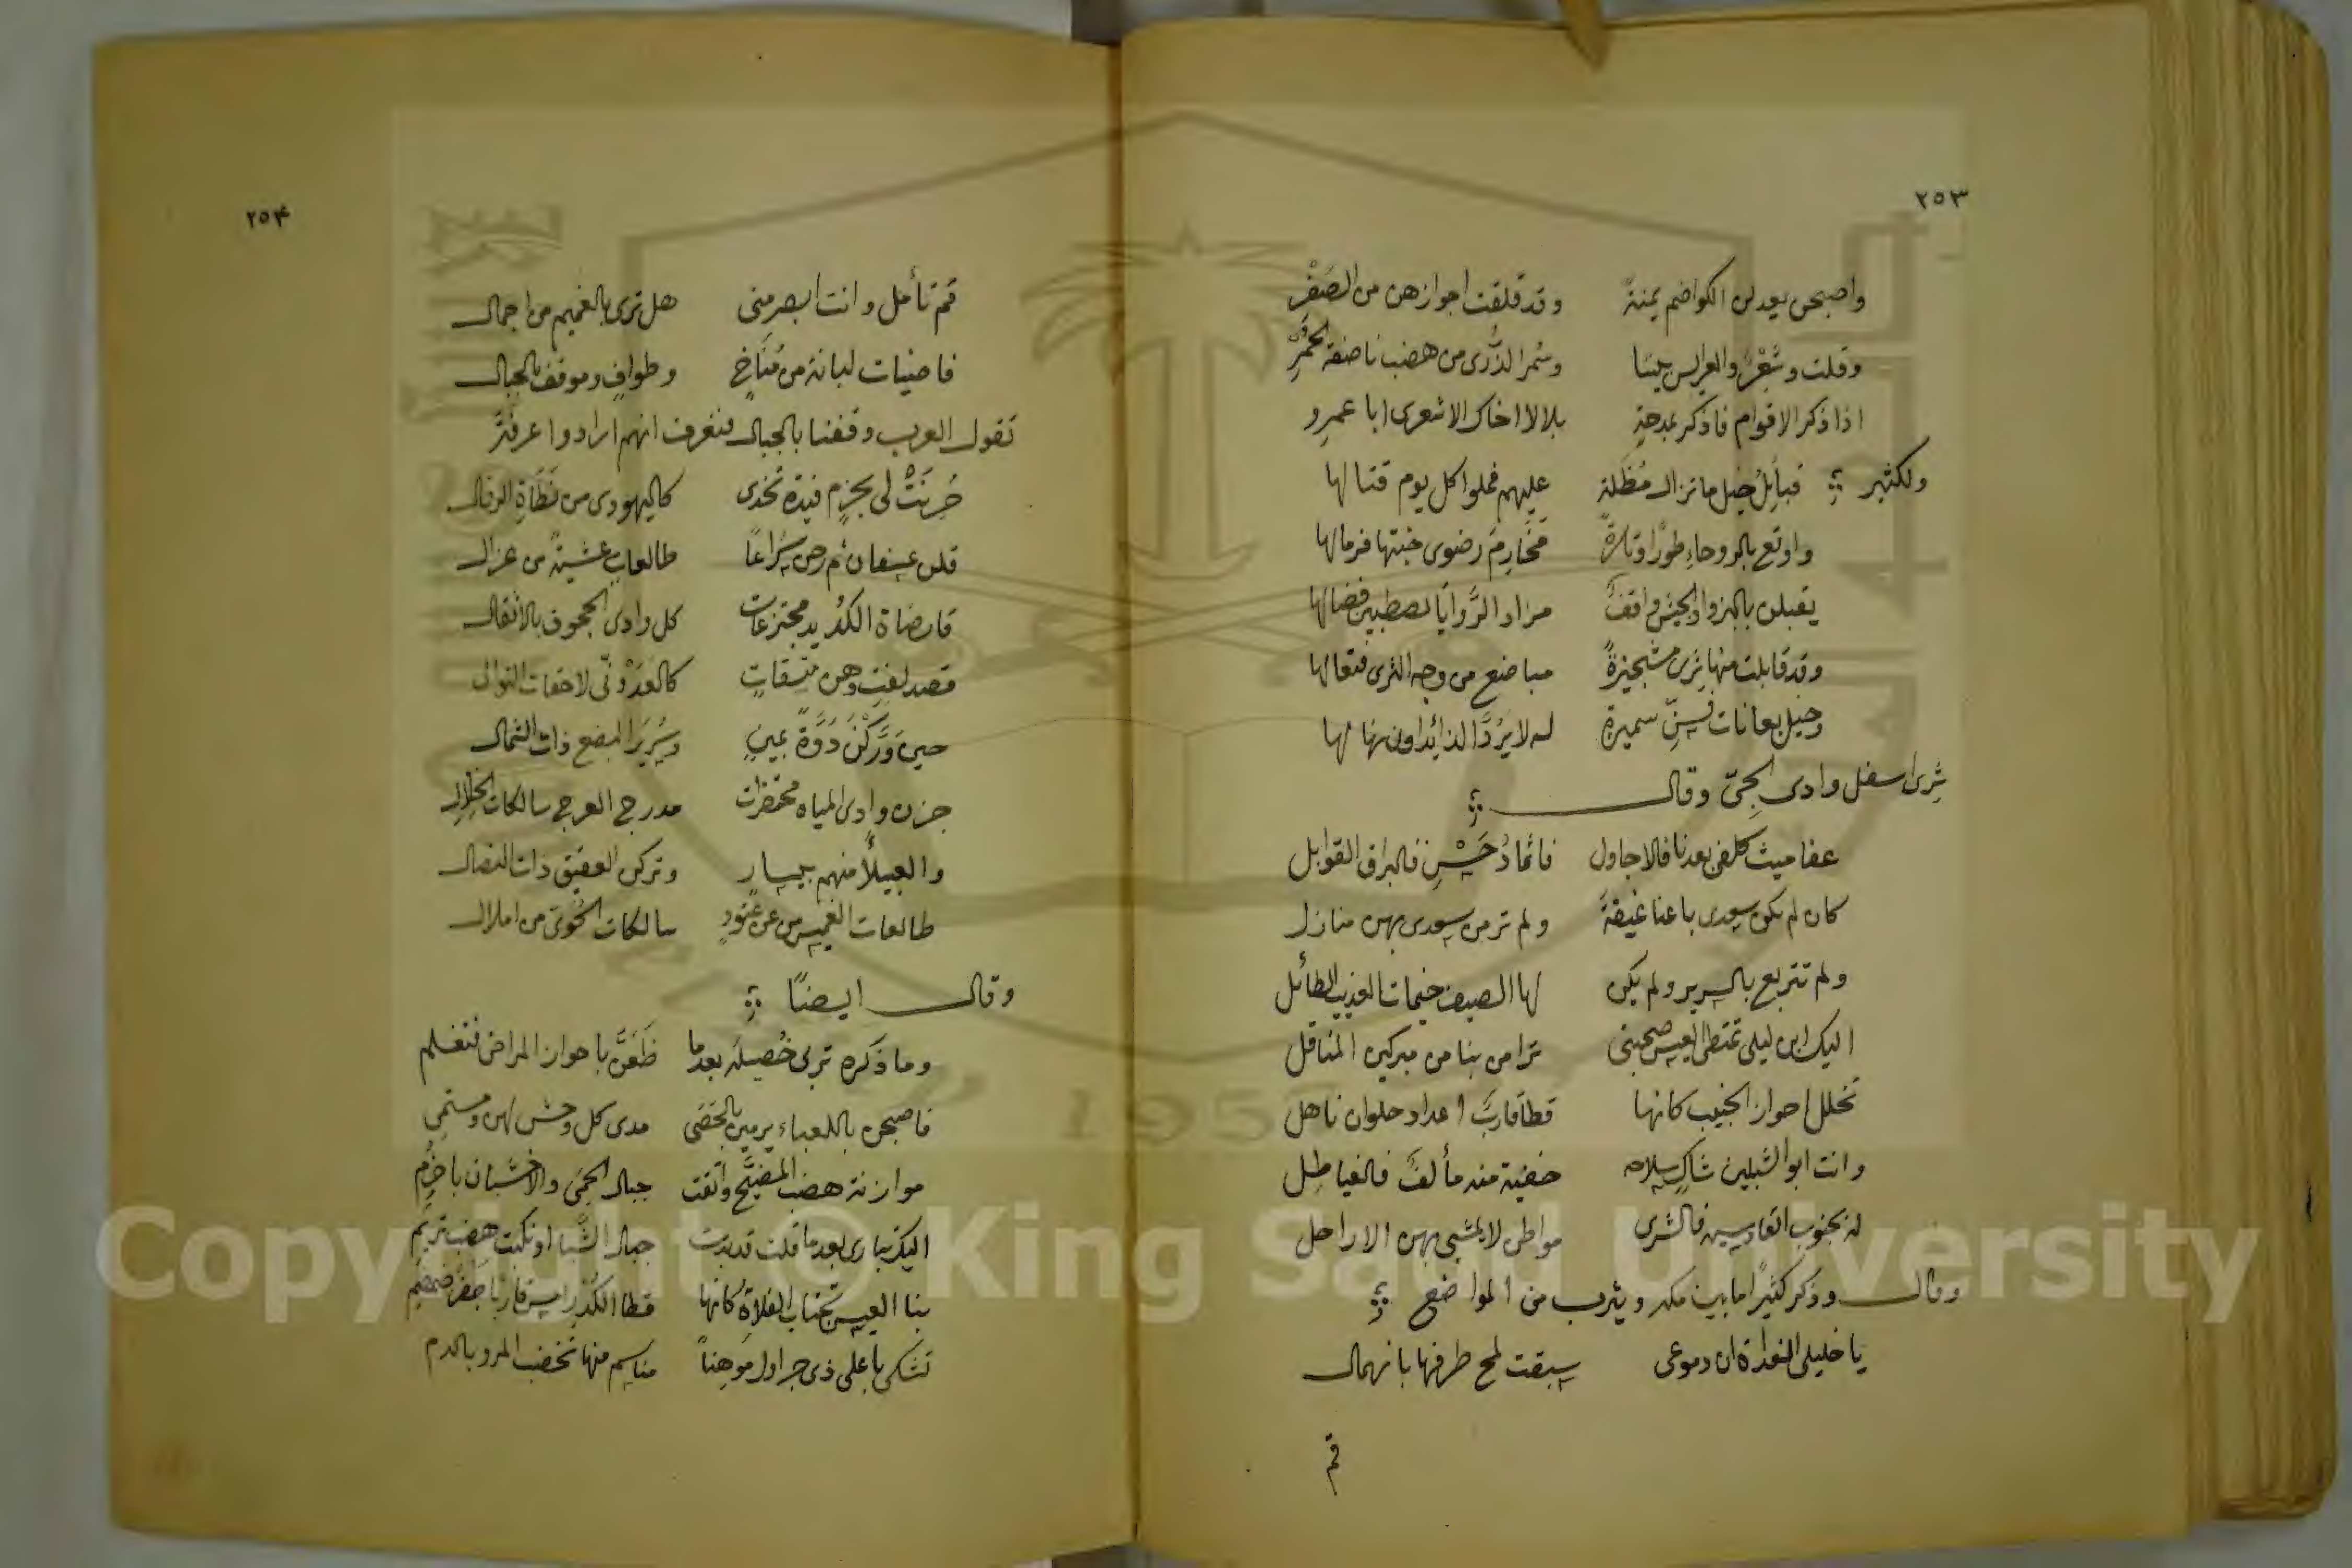 ٢٥٣
واصبحن يعدلن الكواضم يمنة وقد قلقت اجوازهن من الصَفْرِ
وقلت وشِعْرٌ والعرايس بيننا وسُمر الذُّرى من هضب ناصفة الحُمْرِ
اذا ذكر الاقوام فاذكر بمدحةٍ بلالا اخاك الاشعرى ابا عمرو
ولكثير قبائِلُ خيل ما تزال مُظَلةً عليهم فملوا كل يوم قتالها
واوقع بالروحاء طورًا وتارةً مَخَارِمَ رضوى خبتها فرمالها
يقبلن بالبزواء والجيش واقفٌ مزاد الرَّوايا يصطببن فضالها
وقد قابلت منها ثِرى مستجيزةً مباضع من وجه الثرى فثعالها
وخيل بعانات فَسِنّ سميرةٍ له لا يَرُدّ الذائدون نهالها
ثِرى اسفل وادى الجِىّ وقال
عفا ميث كلفى بعدنا فالاجاول فاثماد حَسْنٍ فالبراق القوابل
كان لم يكن سعدى باعناء غيقة ولم تر من سعدى بهن منازل
ولم تتربع بالسرير ولم يكن لها الصيف خيمات العذيب الظلائل
اليك ابن ليلى تمتطى العيس صحبتى ترامى بنا من مبركين المناقل
تخلل احواز الخبيب كانها قطًا قاربٌ اعداد حلوان ناهل
وانت ابو الشبلين شاكٍ سلاحه خفية منه مألفٌ فالغياطل
له بجنوب القادسية فالشرى مواطن لا يمشى بهن الاراجل
وقال وذكر كثيرًا مما بين مكه ويثرب من المواضع
يا خليلى الغداة ان دموعى سبقت لمح طرفها بانهمال
قم
٢٥٤
قم تأمل وانت ابصر منى هل ترى بالغميم من اجمال
قاضيات لبانة من مُنَاخٍ وطوافٍ وموقف بالجبال
تقول العرب وقفنا بالجبال فنعرف انهم ارادوا عرفةَ
حُزِيَتْ لى بحزم فيدة تحدى كاليهودى من نَطَاةِ الرقال
قلن عسفان ثم رحن سَرَاعًا طالعاتٍ عشيةً من غزال
قارضاة الكُدَيد مجتزعات كل وادى الجحوف بالاثقال
قصد لفتٍ وهن متسقاتٍ كالعَدَوْلىّ لاحقات التوالى
حين وَرَّكْنَ دَوَّةً بيمينٍ وسُرَيرَ البضيع ذات الشمال
جزن وادى المياه محتضرات مدرج العرج سالكات الخِلال
والعبيلاً منهم بيسارٍ وتركن العقيق ذات النصال
طالعات الغميس من عَبُودٍ سالكات الخَوِىّ من املال
وقال ايضًا
وما ذكره تربى خُصيلة بعدما ظَعَنَّ باحواز المراض فتغلم
فاصبحن باللعباء يرمين بالحَصَى مدى كل وحشىٍ لهن ومستمى
موازنة هضب المضَيَّح واتقت جبال الحِمَى والاخشبان باخرُم
اليك تبارى بعدما قلت قد بدت جبال الشَّبا او نكبت هضب تريم
بنا العيس تجتاب الفلاةَ كانها قطا الكُدْرِ امسى قاربًا جَفْرَ ضمضم
تشكى باعلى ذى جراول مَوهنًا مناسم منها تخضب المرو بالدم
Copyright © King Saud University
195